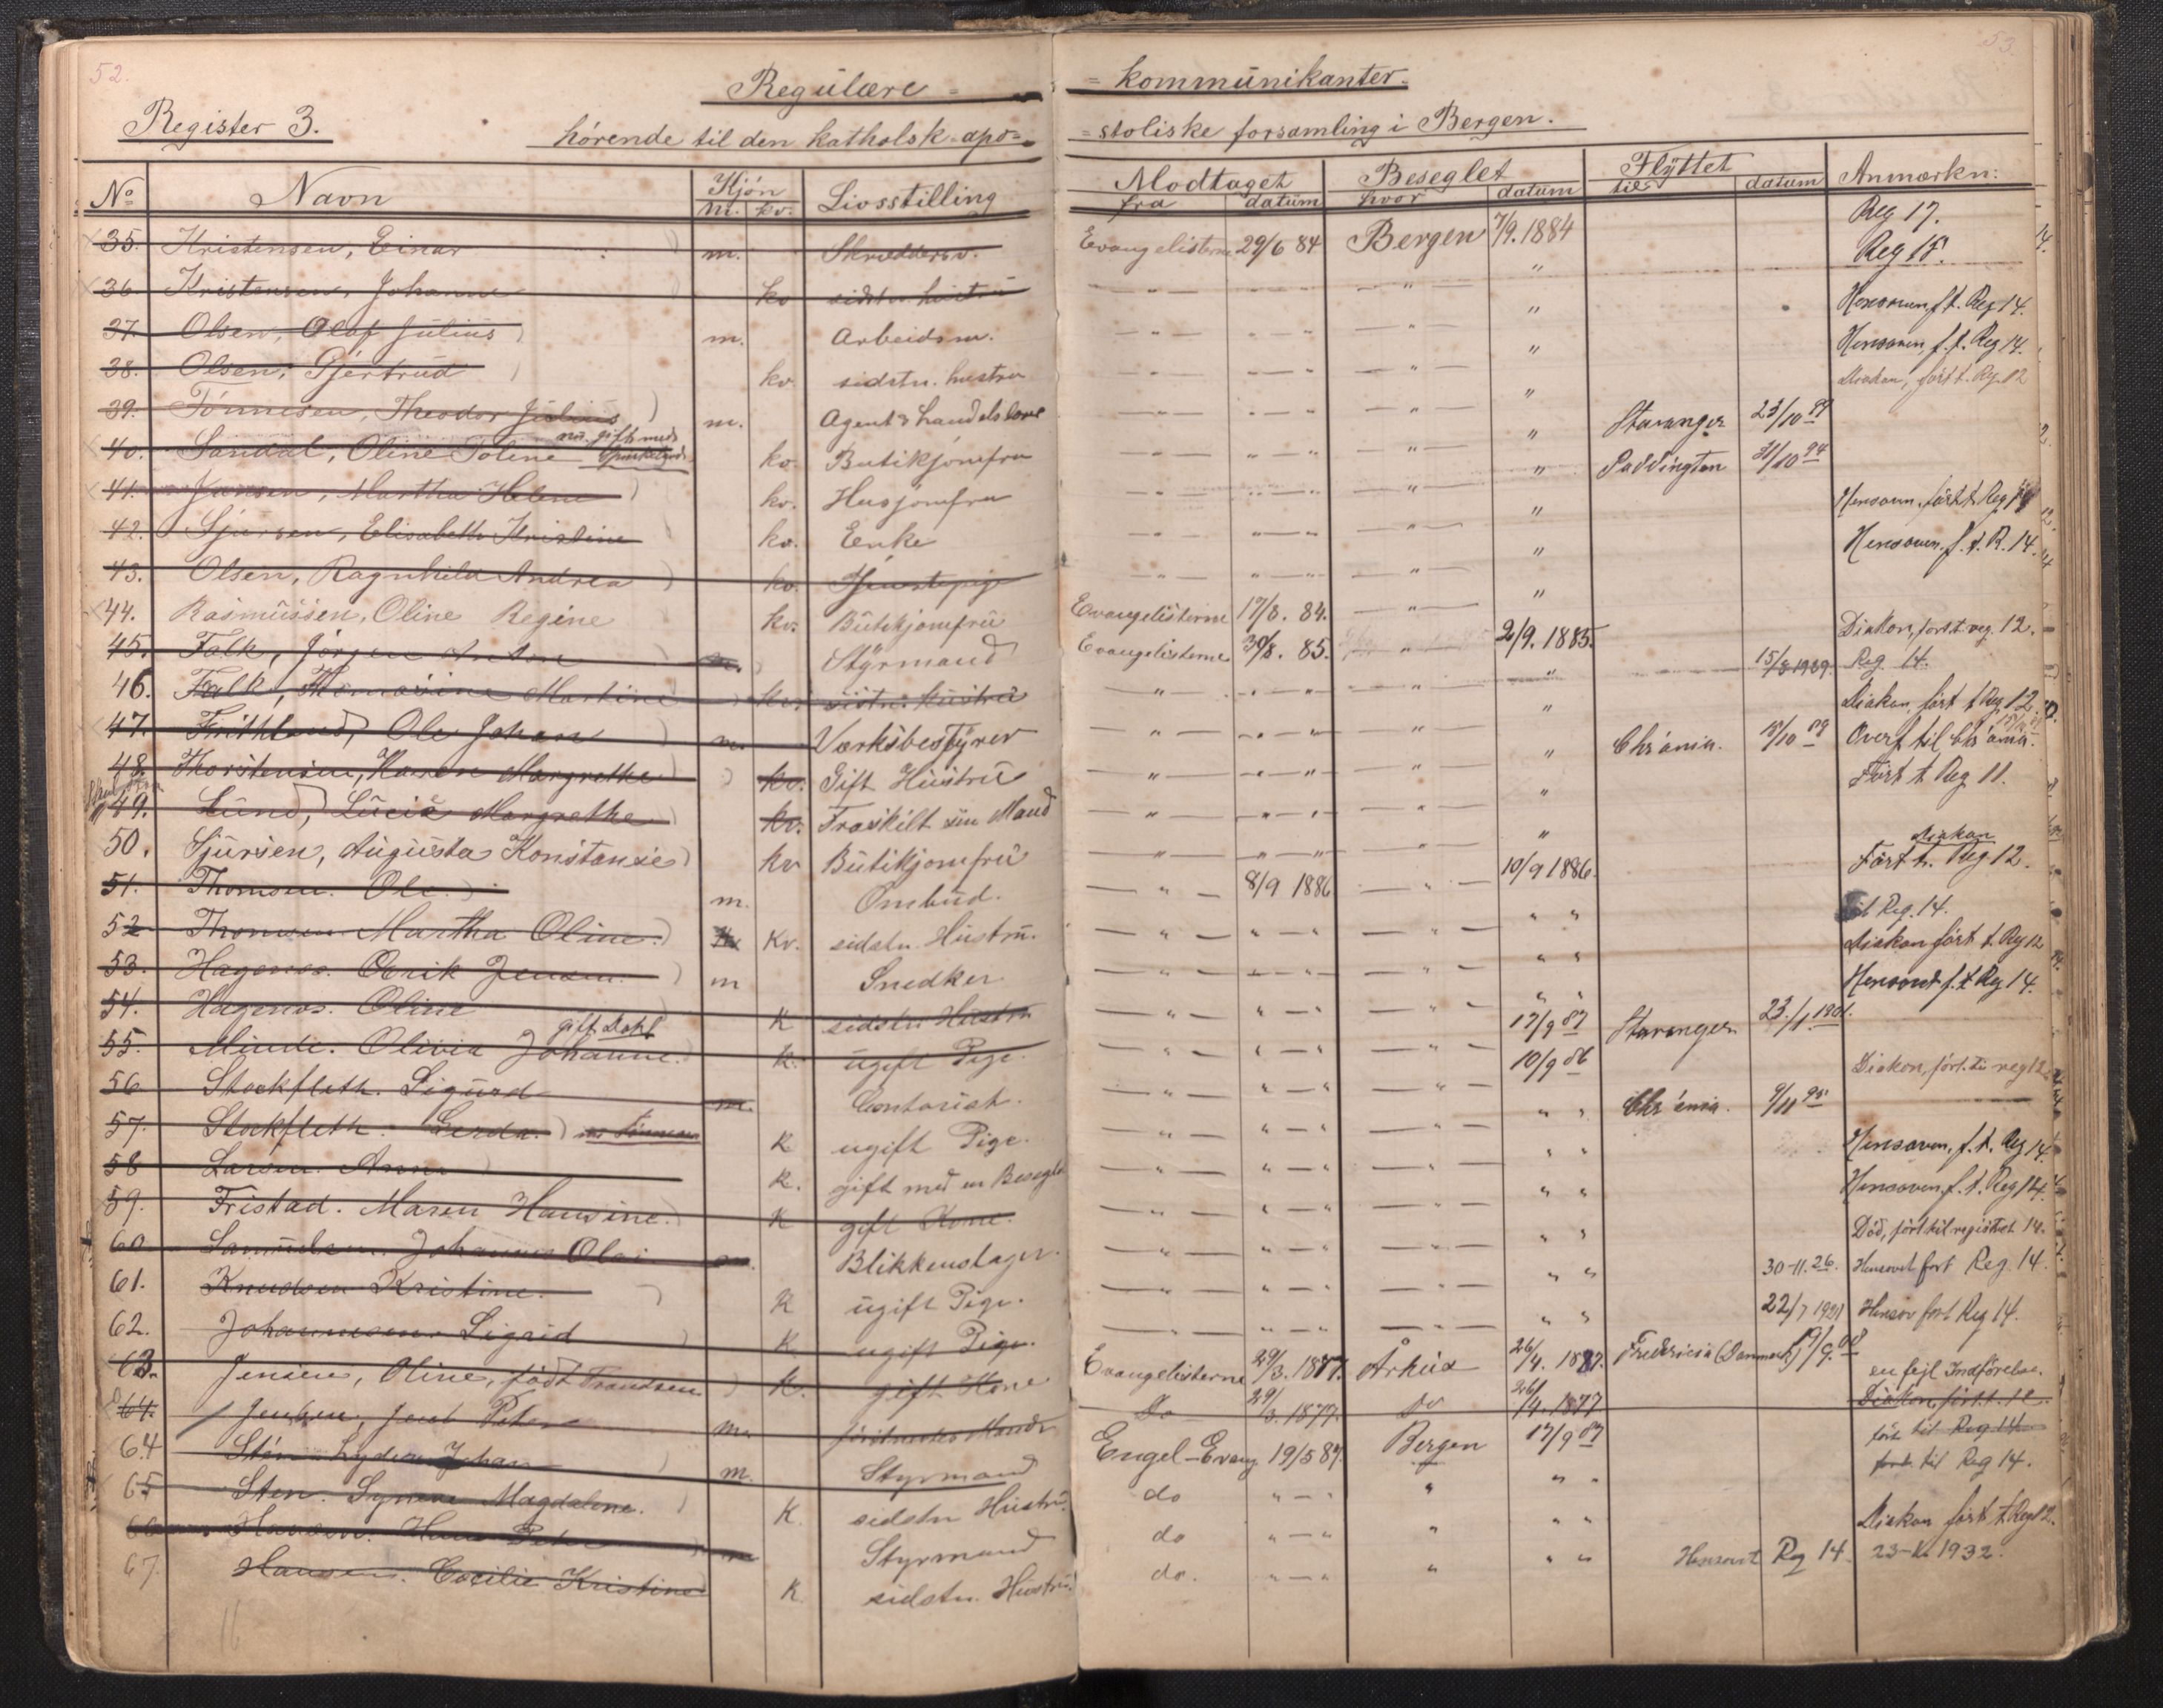 52.
Regulære =
Register 3.
hørende til den katholsk-apo=
No Navn Kjøn Livsstilling
m. kv.
35. Kristensen, Einar m. Skræddersv.
36. Kristensen, Johanne kv sidstn. hustru
37. Olsen, Olaf Julius m. Arbeidsm.
38. Olsen, Gjertrud kv. sidstn. hustru
39. Tönnesen, Theodor Julius m. Agent &
nu gift med
40. Sandal, Oline Toline kv. Butikjomfru
41. Jansen, Martha Helene kv. Husjomfru
42. Sjursen, Elisabeth Kristine kv. Enke
43. Olsen, Ragnhild Andrea kv. Tjenestepige
44. Rasmussen, Oline Regine kv. Butikjomfru
45. Falk, Jörgen Anton m. Styrmand
46. Falk, Thomasine Martine kv. sistn. Hustru
47. Frithland, Ole Johan m. Værksbestyrer
48. Thorstensen, Karen Margrethe kv. Gift Hustru
49. Lund, Lucie Margrethe kv. Fraskilt sin Mand
50. Sjursen, Augusta Konstanse kv Butikjomfru
51. Thomsen. Ole. m. Ombud.
52 Thomsen Martha Oline. Kv. sidstn. Hustru.
53. Hagenos. Elrik Jensen. m Snedker
54. Hagenos. Oline K sidstn Hustru
gift Dahl
55. Minde. Olivia Johanne. K. ugift Pige.
56 Stockfleth. Sigurd m. Contorist.
57. Stockfleth. Gerda. K ugift Pige.
58 Larsen. Anna K. gift med en Besegl
59. Fristad. Maren Hansine. K gift Kone.
60. Samuelsen. Johannes Olai m. Blikkenslager.
61. Knudsen Kristine. K ugift Pige.
62. Johannesen. Sigrid K ugift Pige.
63. Jensen, Oline, född Frandsen K. gift Kone
64. Jensen, Jens Peter m. förstnevntes Mand
64 Sten Lyder Johan m. Styrmand
65 Sten. Synneve Magdalene. K. sidstn Hustru.
66 Hansen. Hans Peter m Styrmand
67. Hansen. Cecilie Kristine K sidstn. Hustru.
53.
= kommunikanter.
= stoliske forsamling i Bergen.
Modtaget Beseglet Flyttet Anmærkn:
fra datum hvor datum til datum
Reg 17.
Evangelisterne 29/6 84 Bergen 7/9. 1884 Reg 15.
" " " " Hensoven, f. t. Reg 14.
" " " " Hensoven, f. t. Reg 14.
" " " " Diakon, fört t. Reg. 12
" " " " Stavanger 23/10 99
" " " " Paddington 31/10 94
" " " " Hensovn. fört t. Reg 14
" " " " Hensoven. f. t. R. 14.
" " " "
Evangelisterne 17/8. 84. "
Evangelisterne 30/8. 85. " 2/9. 1885. Diakon, fört t. reg. 12.
" " " " 15/8 1939. Reg 14.
" " " " Diakon, fört t Reg 12.
" " " " Chr'ania. 18/10 09 Overf til Chr'ania.
" " " " Fört t. Reg 11.
" " " "
Diakon
" 8/9 1886 " 10/9 1886. Fört t. Reg 12.
" " " " " t Reg. 14.
" " " " " Diakon fört t. Reg 12
" " " " " Hensovet f. t Reg 14.
" " " 17/9 87 Stavanger 23./1 1901.
" " " 10/9 86 Diakon, fört. til reg 12
" " " " " Chr'ania. 9/11 95
" " " " " Hensoven, f. t. Reg 14.
" " " " " Hensoven, f. t. Reg 14.
" " " " " Död, fört til registret 14.
" " " " " 30-11. 26. Hensovet fört Reg. 14.
" " " " " 22/7 1921 Hensov fört Reg 14.
Evangelisterne 29/3. 1887. Århus 26/4. 1887. Fredericia (Danmark) 19/9. 08
en fejl Indførelse.
Do 29/3. 1877. Do 26/4. 1877 Diakon, fört t. 12.
Engel-Evang. 19/5 87. Bergen 17/9 87 fört til Reg 14
do " " " " fört til Reg 14.
do " " " " Diakon fört t. Reg 12.
do. " " " " Hensovet Reg 14. 1932.